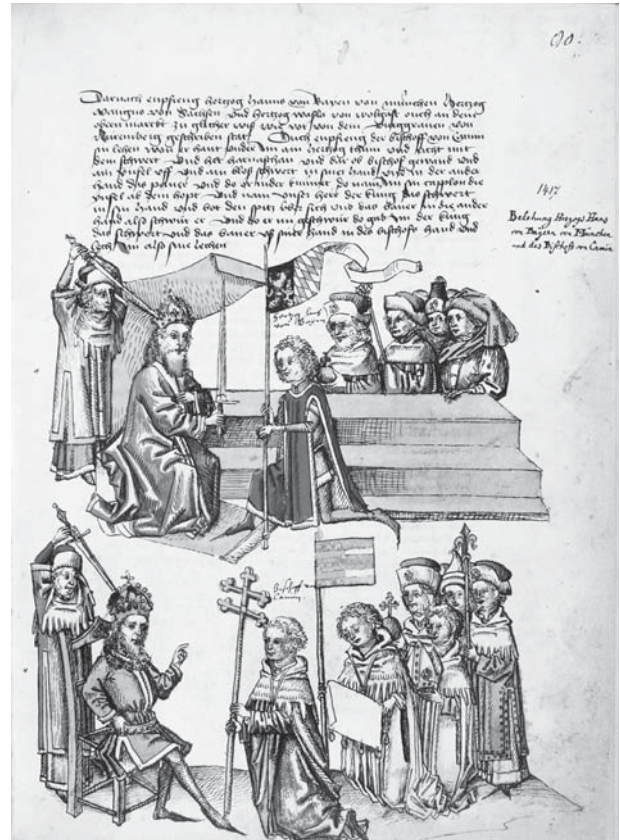 90.
Darnach enpfieng hertzog hanns von Bayern von münchen hertzog
von Sachsen und hertzog von wolgast ouch an dem
obern marckt zů glicher wiß wie vor von dem Burggrauen von
Nüremberg geschriben stat Ouch enpfieng der bischoff von Camin
sin lehen
dem schwert und het harnasch an und dar ob bischof gewand und
ain ynfel uff und ain bloß schwert in siner hand und in der ander
hand das paner und do er nider knüwet do nam im sin capplon die
ynfel ab dem hopt und nam unser herr der küng das schwert
in sin hand und bot den spitz über sich und das baner in die ander
hand also schwür er und do er im geschwür do gab im der küng
das schwert und das baner uß siner hand in des bischofs hand und
lech im also sine lechen
1417
Belehnung Herzogs Hans
von Bayern von München
und des Bischofs von Camin
hertzog hans
von Bayern
Bischoff
Camin